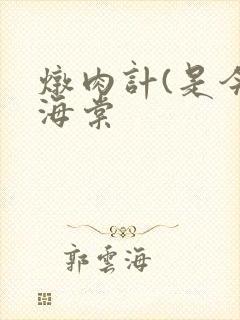 燉肉計(是今
海棠
郭雲海